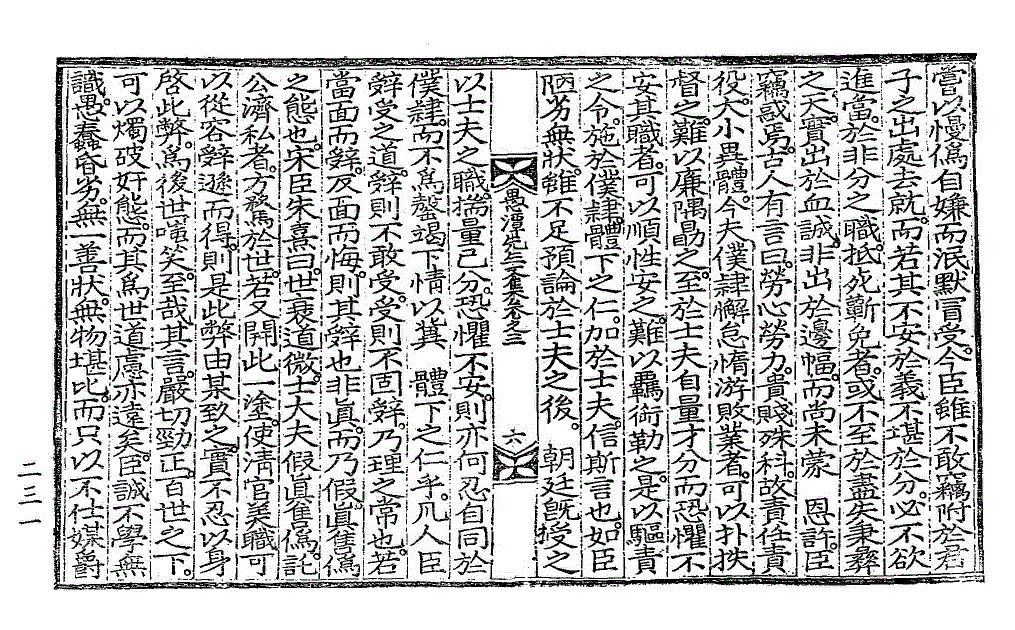 嘗以憂傷自嫌而泯默冒受今臣雖不敢竊附於君
子之出處去就而若其不安於義不堪於分必不欲
進當於非分之職抵死蘄免者或不至於盡失秉彝
之天實出於血誠非出於邊幅而尚未蒙 恩許臣
竊惑焉古人有言曰勞心勞力貴賤殊科故責任責
役大小異體今夫僕隷懈怠惰游敗業者可以扑抶
督之難以廉隅勗之至於士夫自量才分而恐懼不
安其職者可以順性安之難以羈銜勒之是以驅責
之令施於僕隷體下之仁加於士夫信斯言也如臣
陋劣無狀雖不足預論於士夫之後 朝廷旣授之
愚潭先生文集卷之三 六
以士夫之職揣量已分恐懼不安則亦何忍自同於
僕隷而不爲罄竭下情以冀 體下之仁乎凡人臣
辭受之道辭則不敢受受則不固辭乃理之常也若
當面而辭反面而悔則其辭也非眞而乃假眞售僞
之態也宋臣朱熹曰世衰道微士大夫假眞售僞託
公濟私者方騖於世若又開此一塗使淸官美職可
以從容辭遜而得則是此弊由某致之實不忍以身
啓此弊爲後世嗤笑至哉其言嚴切勁正百世之下
可以燭破奸態而其爲世道慮亦遠矣臣誠不學無
識愚蠢昏劣無一善狀無物堪比而只以不仕媒爵
二三一